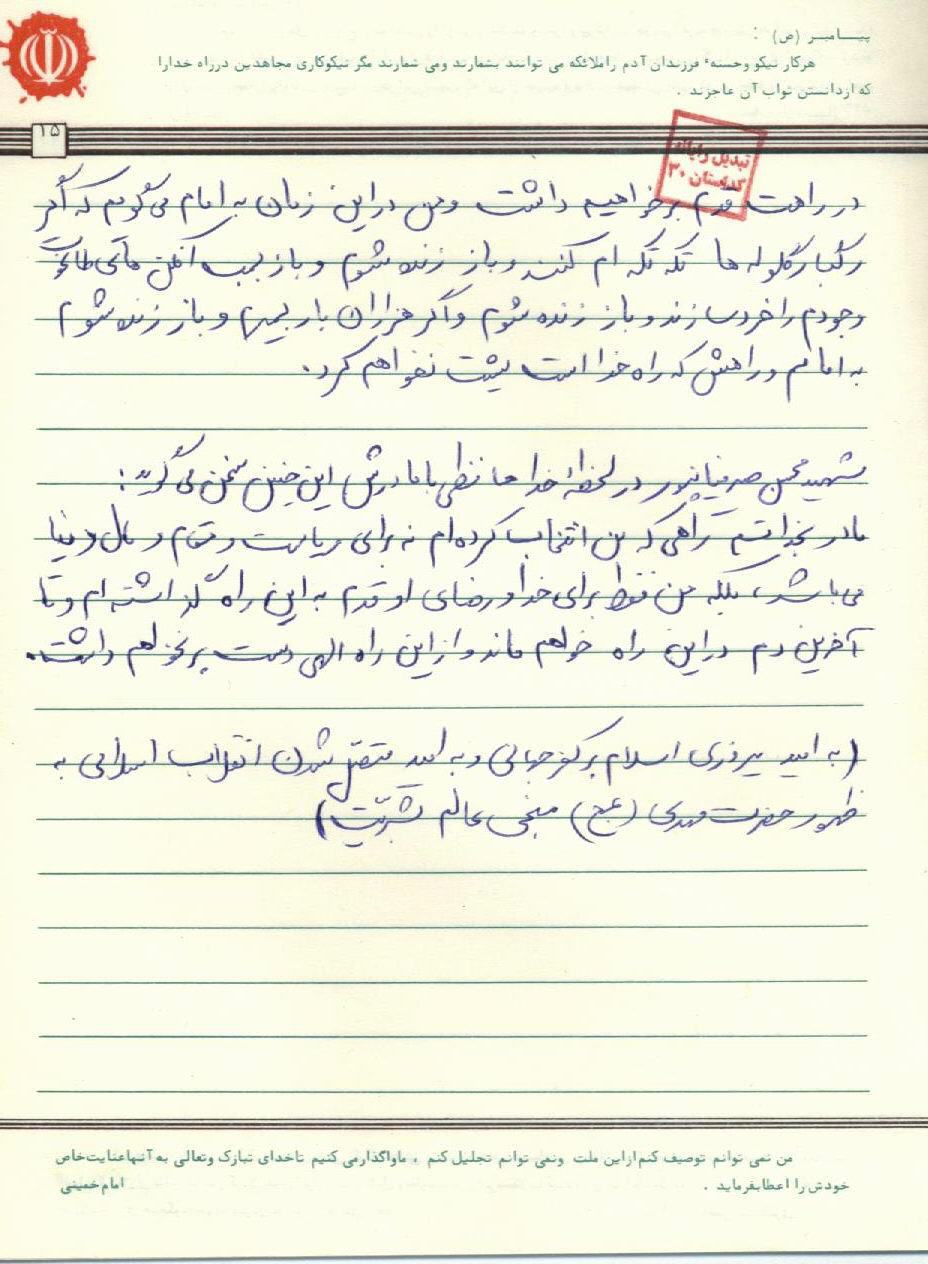 پیـــامبــر (ص) :
هرکار نیکو وحسنهٔ فرزندان آدم راملائکه می توانند بشمارند ومی شمارند مگر نیکوکاری مجاهدین درراه خدارا
که ازدانستن ثواب آن عاجزند .
۱۵
تبدیل رایانه
کد استان ۳۰
در راهت قدم برخواهیم داشت ومن دراین زمان به امام می گویم که اگر
رگبار گلوله ها تکه تکه ام کنند و باز زنده شوم و باز بمب افکن های
وجودم را خرد سازند و باز زنده شوم و اگر هزاران بار بمیرم و باز زنده شوم
به امامم و راهش که راه خدا است پشت نخواهم کرد.
شهید محسن در لحظهٔ خدا حافظی با مادرش این چنین سخن می گوید:
مادر بخدا قسم راهی که من انتخاب کرده ام نه برای ریاست و مقام و مال دنیا
می باشد، بلکه من فقط برای خدا و رضای او قدم به این راه گذاشته ام و تا
آخرین دم در این راه خواهم ماند و از این راه الهی دست بر نخواهم داشت.
(به امید پیروزی اسلام بر کفر جهانی و به امید متصل شدن انقلاب اسلامی به
ظهور حضرت مهدی (عج) منجی عالم بشریّت)
من نمی توانم توصیف کنم ازاین ملت ونمی توانم تجلیل کنم ، ماواگذارمی کنیم تاخدای تبارک وتعالی به آنهاعنایت خاص
خودش را اعطابفرماید . امام خمینی